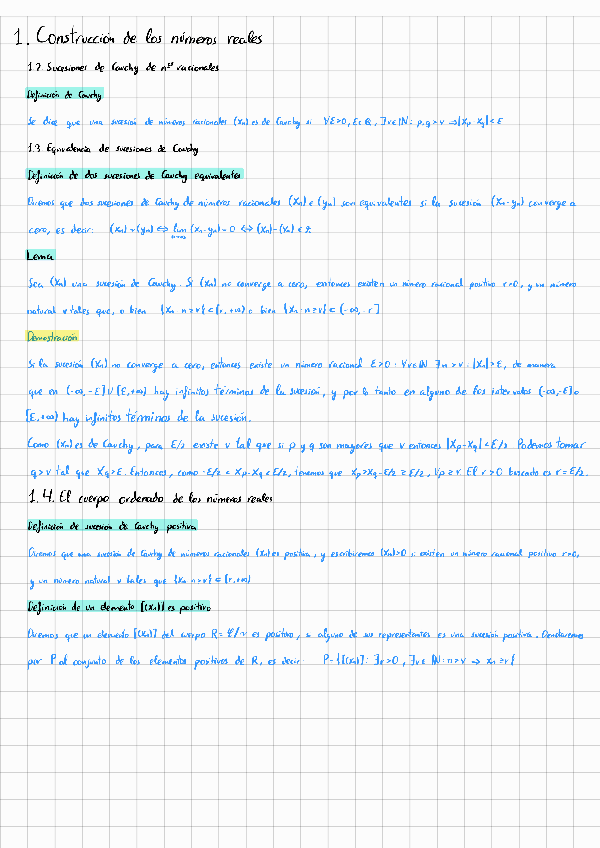 1. Construcción de los números reales
1.2. Sucesiones de Cauchy de nos racionales
Definición de Cauchy
Se dice que una sucesión de números racionales (Xn) es de Cauchy si ∀ε>0, ε∈Q, ∃v∈ℕ: p,q>v ⇒|Xp-Xq|<ε
1.3. Equivalencia de sucesiones de Cauchy
Definición de dos sucesiones de Cauchy equivalentes
Diremos que dos sucesiones de Cauchy de números racionales (Xn) e (yn) son equivalentes si la sucesión (Xn-yn) converge a
cero, es decir: (Xn)~(yn) ⇔ lim (Xn-yn)=0 ⇔ (Xn)-(Yn) ∈
Lema
Sea (Xn) una sucesión de Cauchy. Si (Xn) no converge a cero, entonces existen un número racional positivo r>0, y un número
natural v tales que, o bien {Xn: n≥v}⊂[r,+∞) o bien {Xn: n≥v}⊂(-∞,-r]
Demostración
Si la sucesión (Xn) no converge a cero, entonces existe un número racional ε>0: ∀v∈ℕ ∃n>v: |Xn|>ε, de manera
que en (-∞,-ε]∪[ε,+∞) hay infinitos términos de la sucesión, y por lo tanto en alguno de los intervalos (-∞,-ε] o
[ε,+∞) hay infinitos términos de la sucesión.
Como (Xn) es de Cauchy, para ε/2 existe v tal que si p y q son mayores que v entonces |Xp-Xq|<ε/2. Podemos tomar
q>v tal que Xq>ε. Entonces, como -ε/2<Xp-Xq<ε/2, tenemos que Xp>Xq-ε/2≥ε/2, ∀p≥v. El r>0 buscado es r=ε/2.
1.4. El cuerpo ordenado de los números reales
Definición de sucesión de Cauchy positiva
Diremos que una sucesión de Cauchy de números racionales (Xn) es positiva, y escribiremos (Xn)>0 si existen un número racional positivo r>0,
y un número natural v tales que {Xn: n>v}⊂[r,+∞)
Definición de un elemento [(Xn)] es positivo
Diremos que un elemento [(Xn)] del cuerpo R=𝒞/~ es positivo, si alguno de sus representantes es una sucesión positiva. Denotaremos
por P al conjunto de los elementos positivos de R, es decir: P={[(Xn)]: ∃r>0, ∃v∈ℕ: n>v ⇒ xn≥r}